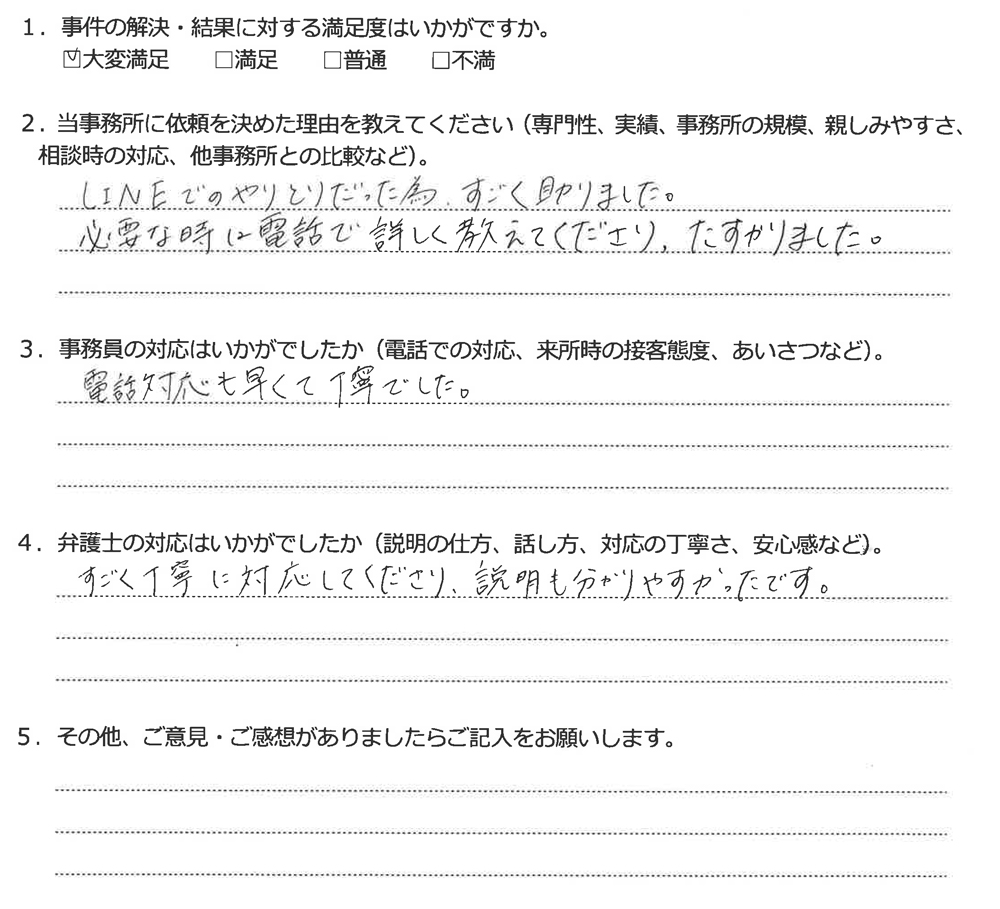 1．事件の解決・結果に対する満足度はいかがですか。
☑大変満足 □満足 □普通 □不満
2．当事務所に依頼を決めた理由を教えてください（専門性、実績、事務所の規模、親しみやすさ、
相談時の対応、他事務所との比較など）。
LINEでのやりとりだった為、すごく助りました。
必要な時は電話で詳しく教えてくださり、たすかりました。
3．事務員の対応はいかがでしたか（電話での対応、来所時の接客態度、あいさつなど）。
電話対応も早くて丁寧でした。
4．弁護士の対応はいかがでしたか（説明の仕方、話し方、対応の丁寧さ、安心感など）。
すごく丁寧に対応してくださり、説明も分かりやすかったです。
5．その他、ご意見・ご感想がありましたらご記入をお願いします。